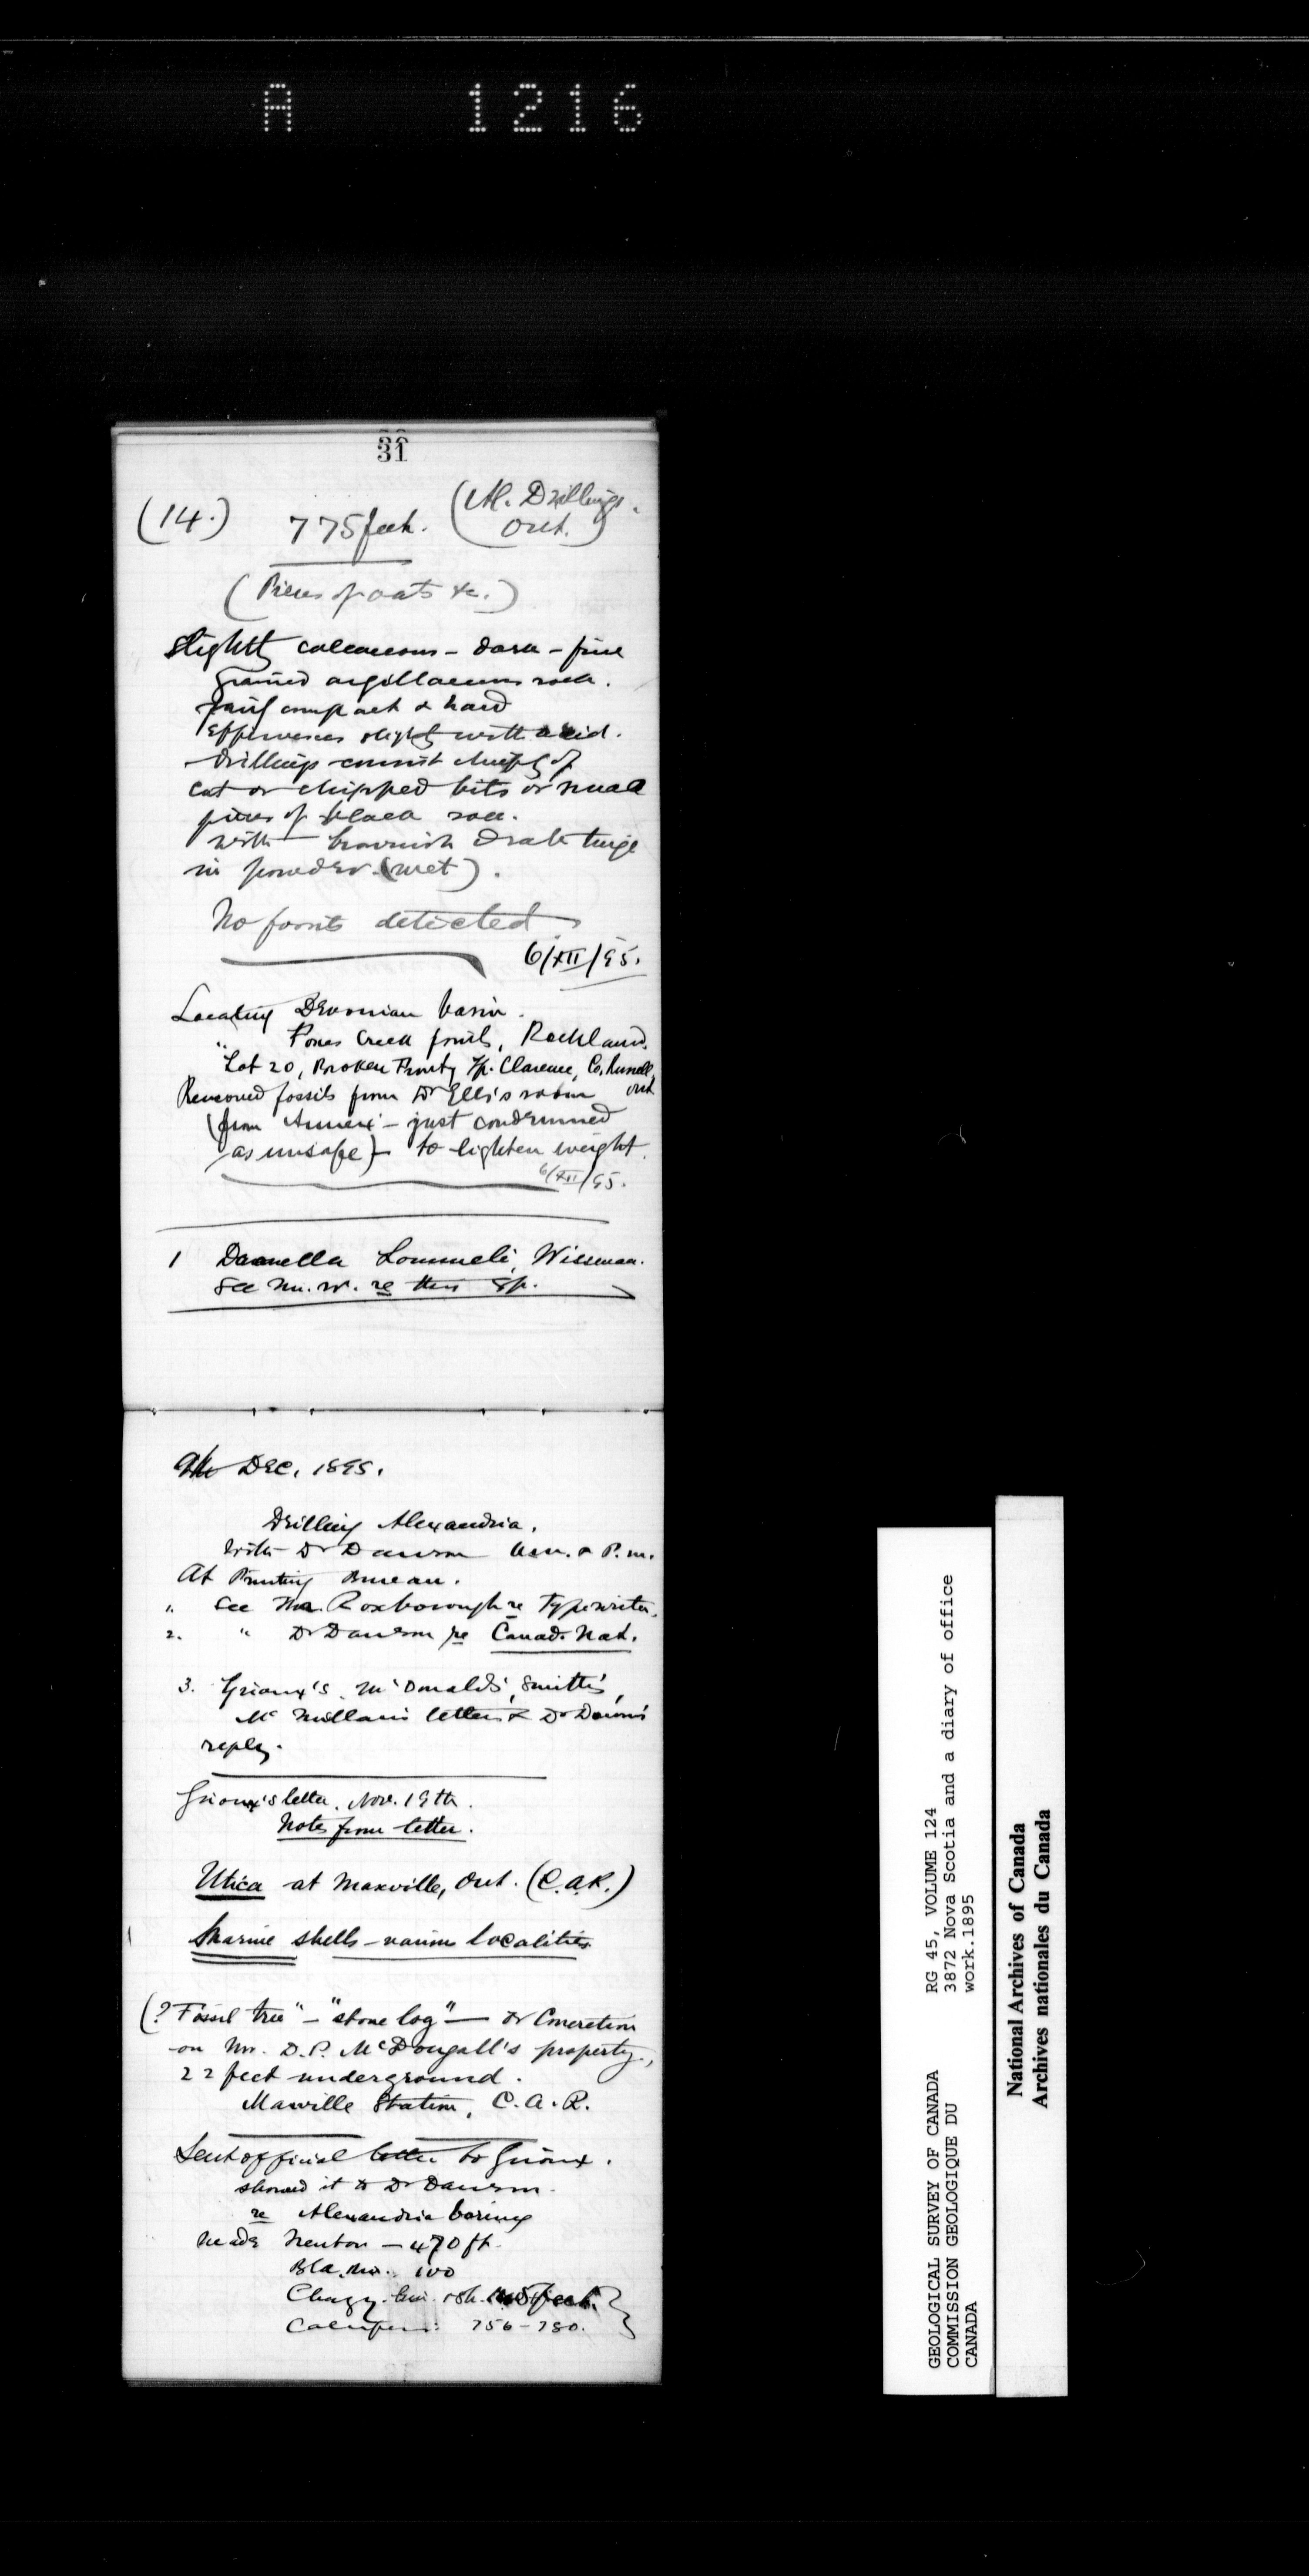 A 1216
31
(14.) 775 feet. (Al. Drillings. Ont.)
(Pieces of oats &c.)
Slightly calcareous - dark - fine
grained argillaceous rock.
fairly compact & hard
Effervesces slightly with acid.
Drillings consist chiefly of
cut or chipped bits or small
pieces of black rock.
with brownish drab tinge
in powder (wet).
No fossils detected
6/XII/95.
Locating Devonian basin.
" Creek fossils, Rockland.
Lot 20, Broken Front, Tp. Clarence, Co. Russell, Ont
Removed fossils from Dr Ells's room
(from Annex - just condemned
as unsafe) - to lighten weight.
6/XII/95.
1 Daonella Lommeli, Wissman.
See re this sp.
9th Dec. 1895.
Drilling Alexandria.
with Dr Dawson a.m. & P.m.
At Printing Bureau.
1. See Mr. Roxborough re Typewriter.
2. " Dr Dawson re Canad. Nat.
3. Grioux's, McDonald's, Smith's,
McMillan's letters & Dr Dawson's
reply.
Grioux's letter. Nov. 19th.
Notes from letter.
Utica at Maxville, Ont. (C.A.R.)
Marine shells - various localities
(? Fossil tree" - "stone log" - or Concretion
on Mr. D.P. McDougall's property,
22 feet underground.
Maxville Station, C.A.R.
Sent official letter to Grioux.
showed it to Dr Dawson.
re Alexandria boring
made Trenton - 470 ft.
Bla. Riv. 100
Chazy. lim. & sh. feet.
Calcifer.: 756-780.
GEOLOGICAL SURVEY OF CANADA
COMMISSION GEOLOGIQUE DU
CANADA
RG 45, VOLUME 124
3872 Nova Scotia and a diary of office
work.1895
National Archives of Canada
Archives nationales du Canada